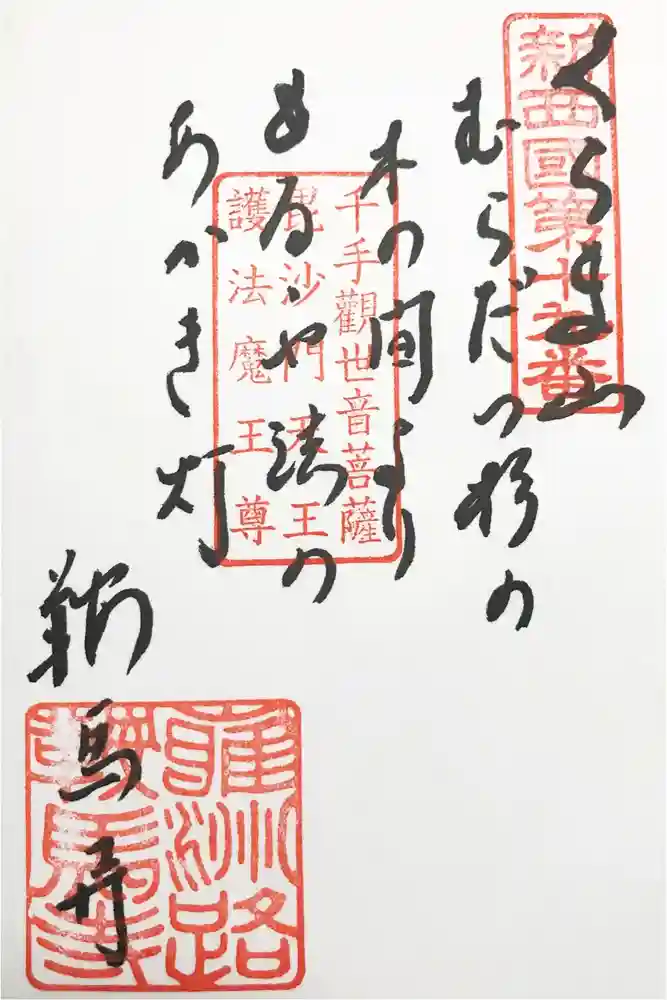 新西國第十九番
くらま山
むらだつ杉の
木の間より
もるゝや法の
あかき灯
千手觀世音菩薩
毘沙門天王
護法魔王尊
鞍馬寺
雍洲路
鞍馬寺